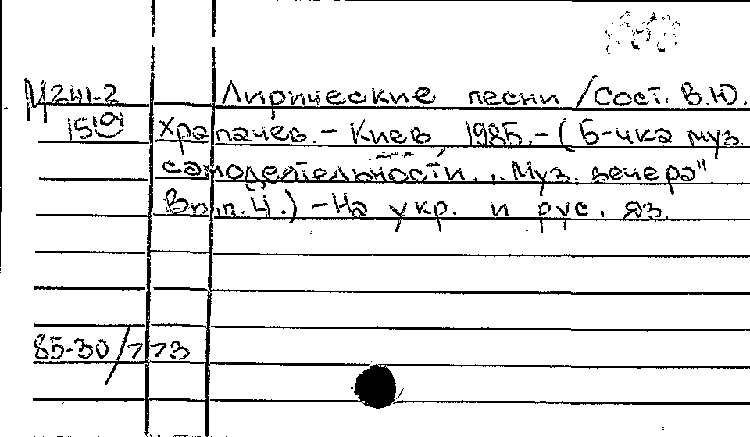 М241-2 Лирические песни /Сост. В.Ю.
Храпачев. - Киев, 1985. - (Б-чка муз.
самодеятельности. „Муз. вечера"
Вып. 4.) - На укр. и рус. яз.
85-30/773